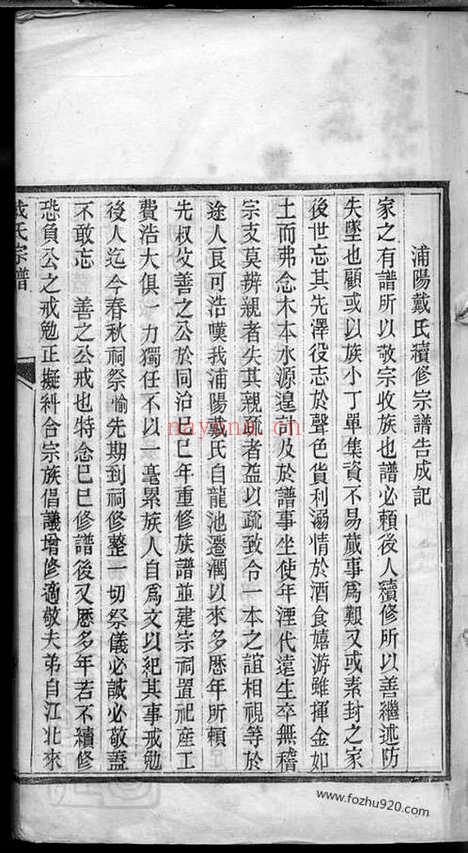 浦陽戴氏續修宗譜告成記
家之有譜所以敬宗收族也譜必賴後人續修所以善繼述防
失墜也顧或以族小丁單集資不易蕆事爲艱又或素封之家
後世忘其先澤役志於聲色貨利溺情於酒食嬉游雖揮金如
土而弗念木本水源遑計及於譜事坐使年湮代遠生卒無稽
宗支莫辨親者失其親疏者益以疏致令一本之誼相視等於
途人良可浩嘆我浦陽戴氏自龍池遷澗以來多歷年所賴
先叔父善之公於同治己巳年重修族譜並建宗祠置祀產工
費浩大俱一力獨任不以一毫累族人自爲文以紀其事戒勉
後人迄今春秋祠祭愉先期到祠修整一切祭儀必誠必敬蓋
不敢忘 善之公戒也特念己巳修譜後又歷多年若不續修
恐負公之戒勉正擬糾合宗族倡議增修適敬夫弟自江北來
戴氏宗譜
nayona.cn
www.fozhu920.com